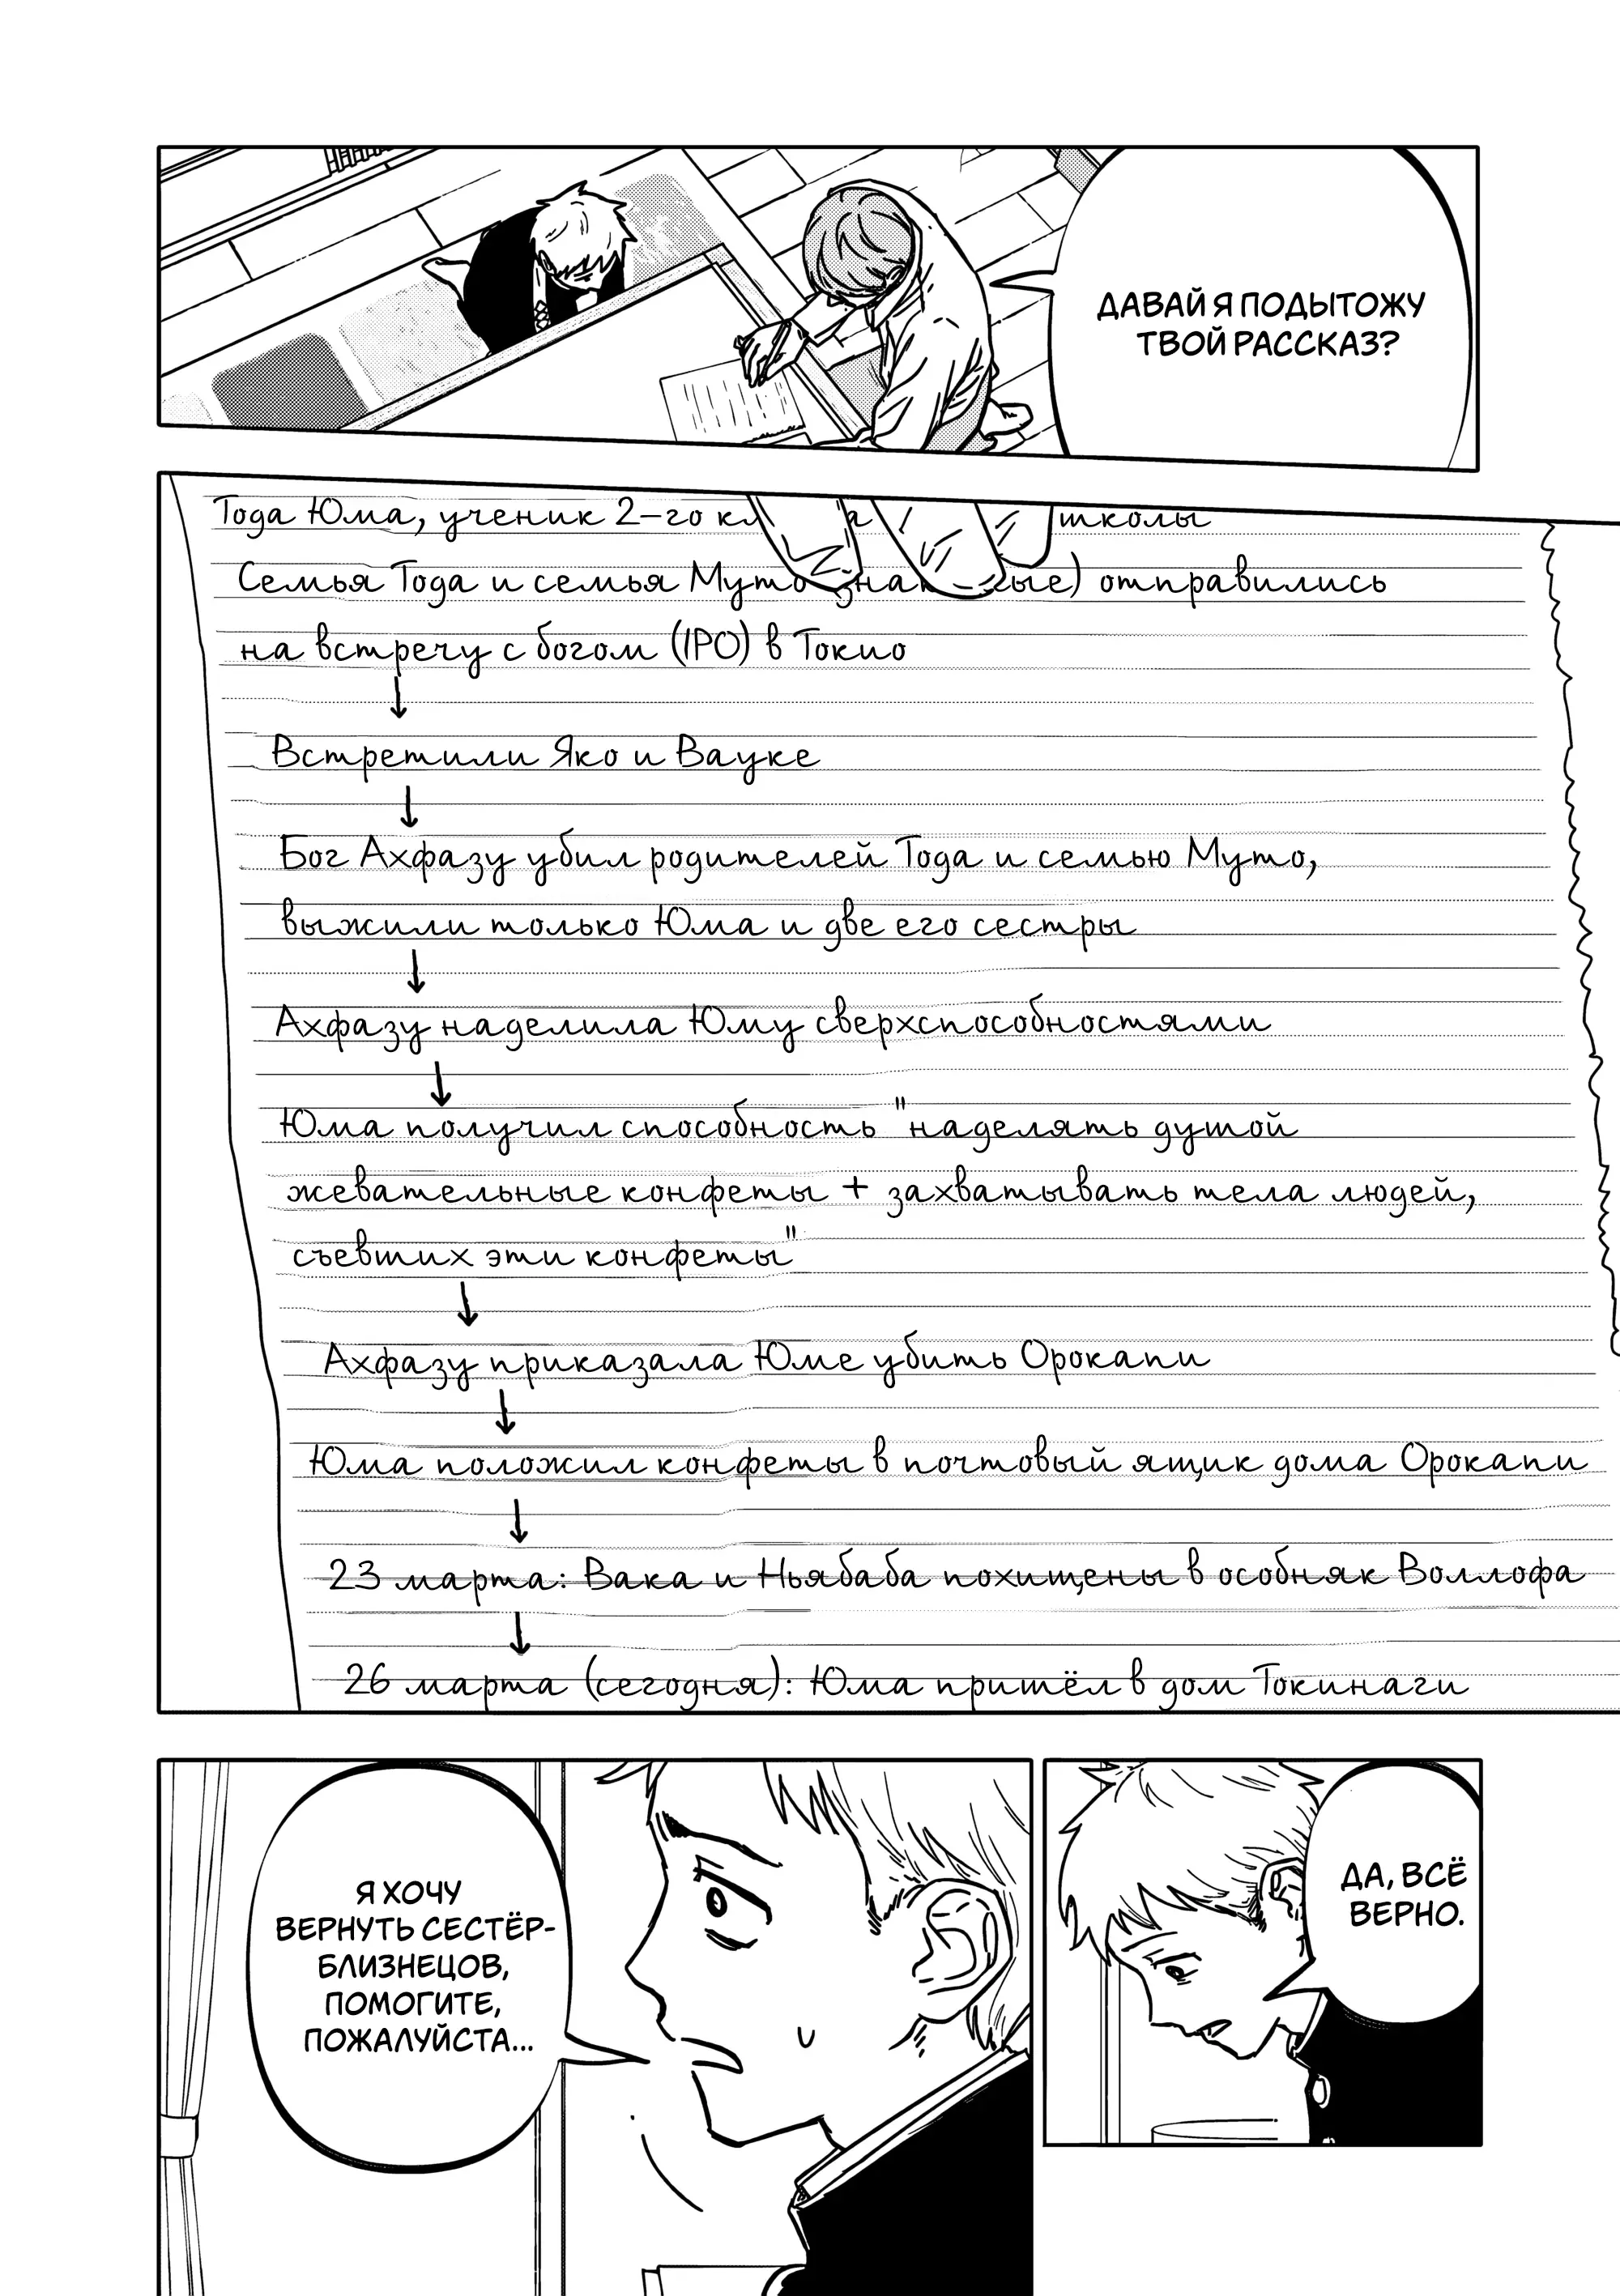 ДАВАЙ Я ПОДЫТОЖУ
ТВОЙ РАССКАЗ?
Тода Юма, ученик 2-го школы
Семья Тода и семья Муто отправились
на встречу с богом (IPO) в Токио
↓
Встретили Яко и Вауке
↓
Бог Ахфазу убил родителей Тода и семью Муто,
выжили только Юма и две его сестры
↓
Ахфазу наделила Юму сверхспособностями
↓
Юма получил способность "наделять душой
жевательные конфеты + захватывать тела людей,
съевших эти конфеты"
↓
Ахфазу приказала Юме убить Орокапи
↓
Юма положил конфеты в почтовый ящик дома Орокапи
↓
23 марта: Вака и Ньябаба похищены в особняк Воллофа
↓
26 марта (сегодня): Юма пришёл в дом Токинаги
ДА, ВСЁ
ВЕРНО.
Я ХОЧУ
ВЕРНУТЬ СЕСТЁР-
БЛИЗНЕЦОВ,
ПОМОГИТЕ,
ПОЖАЛУЙСТА...